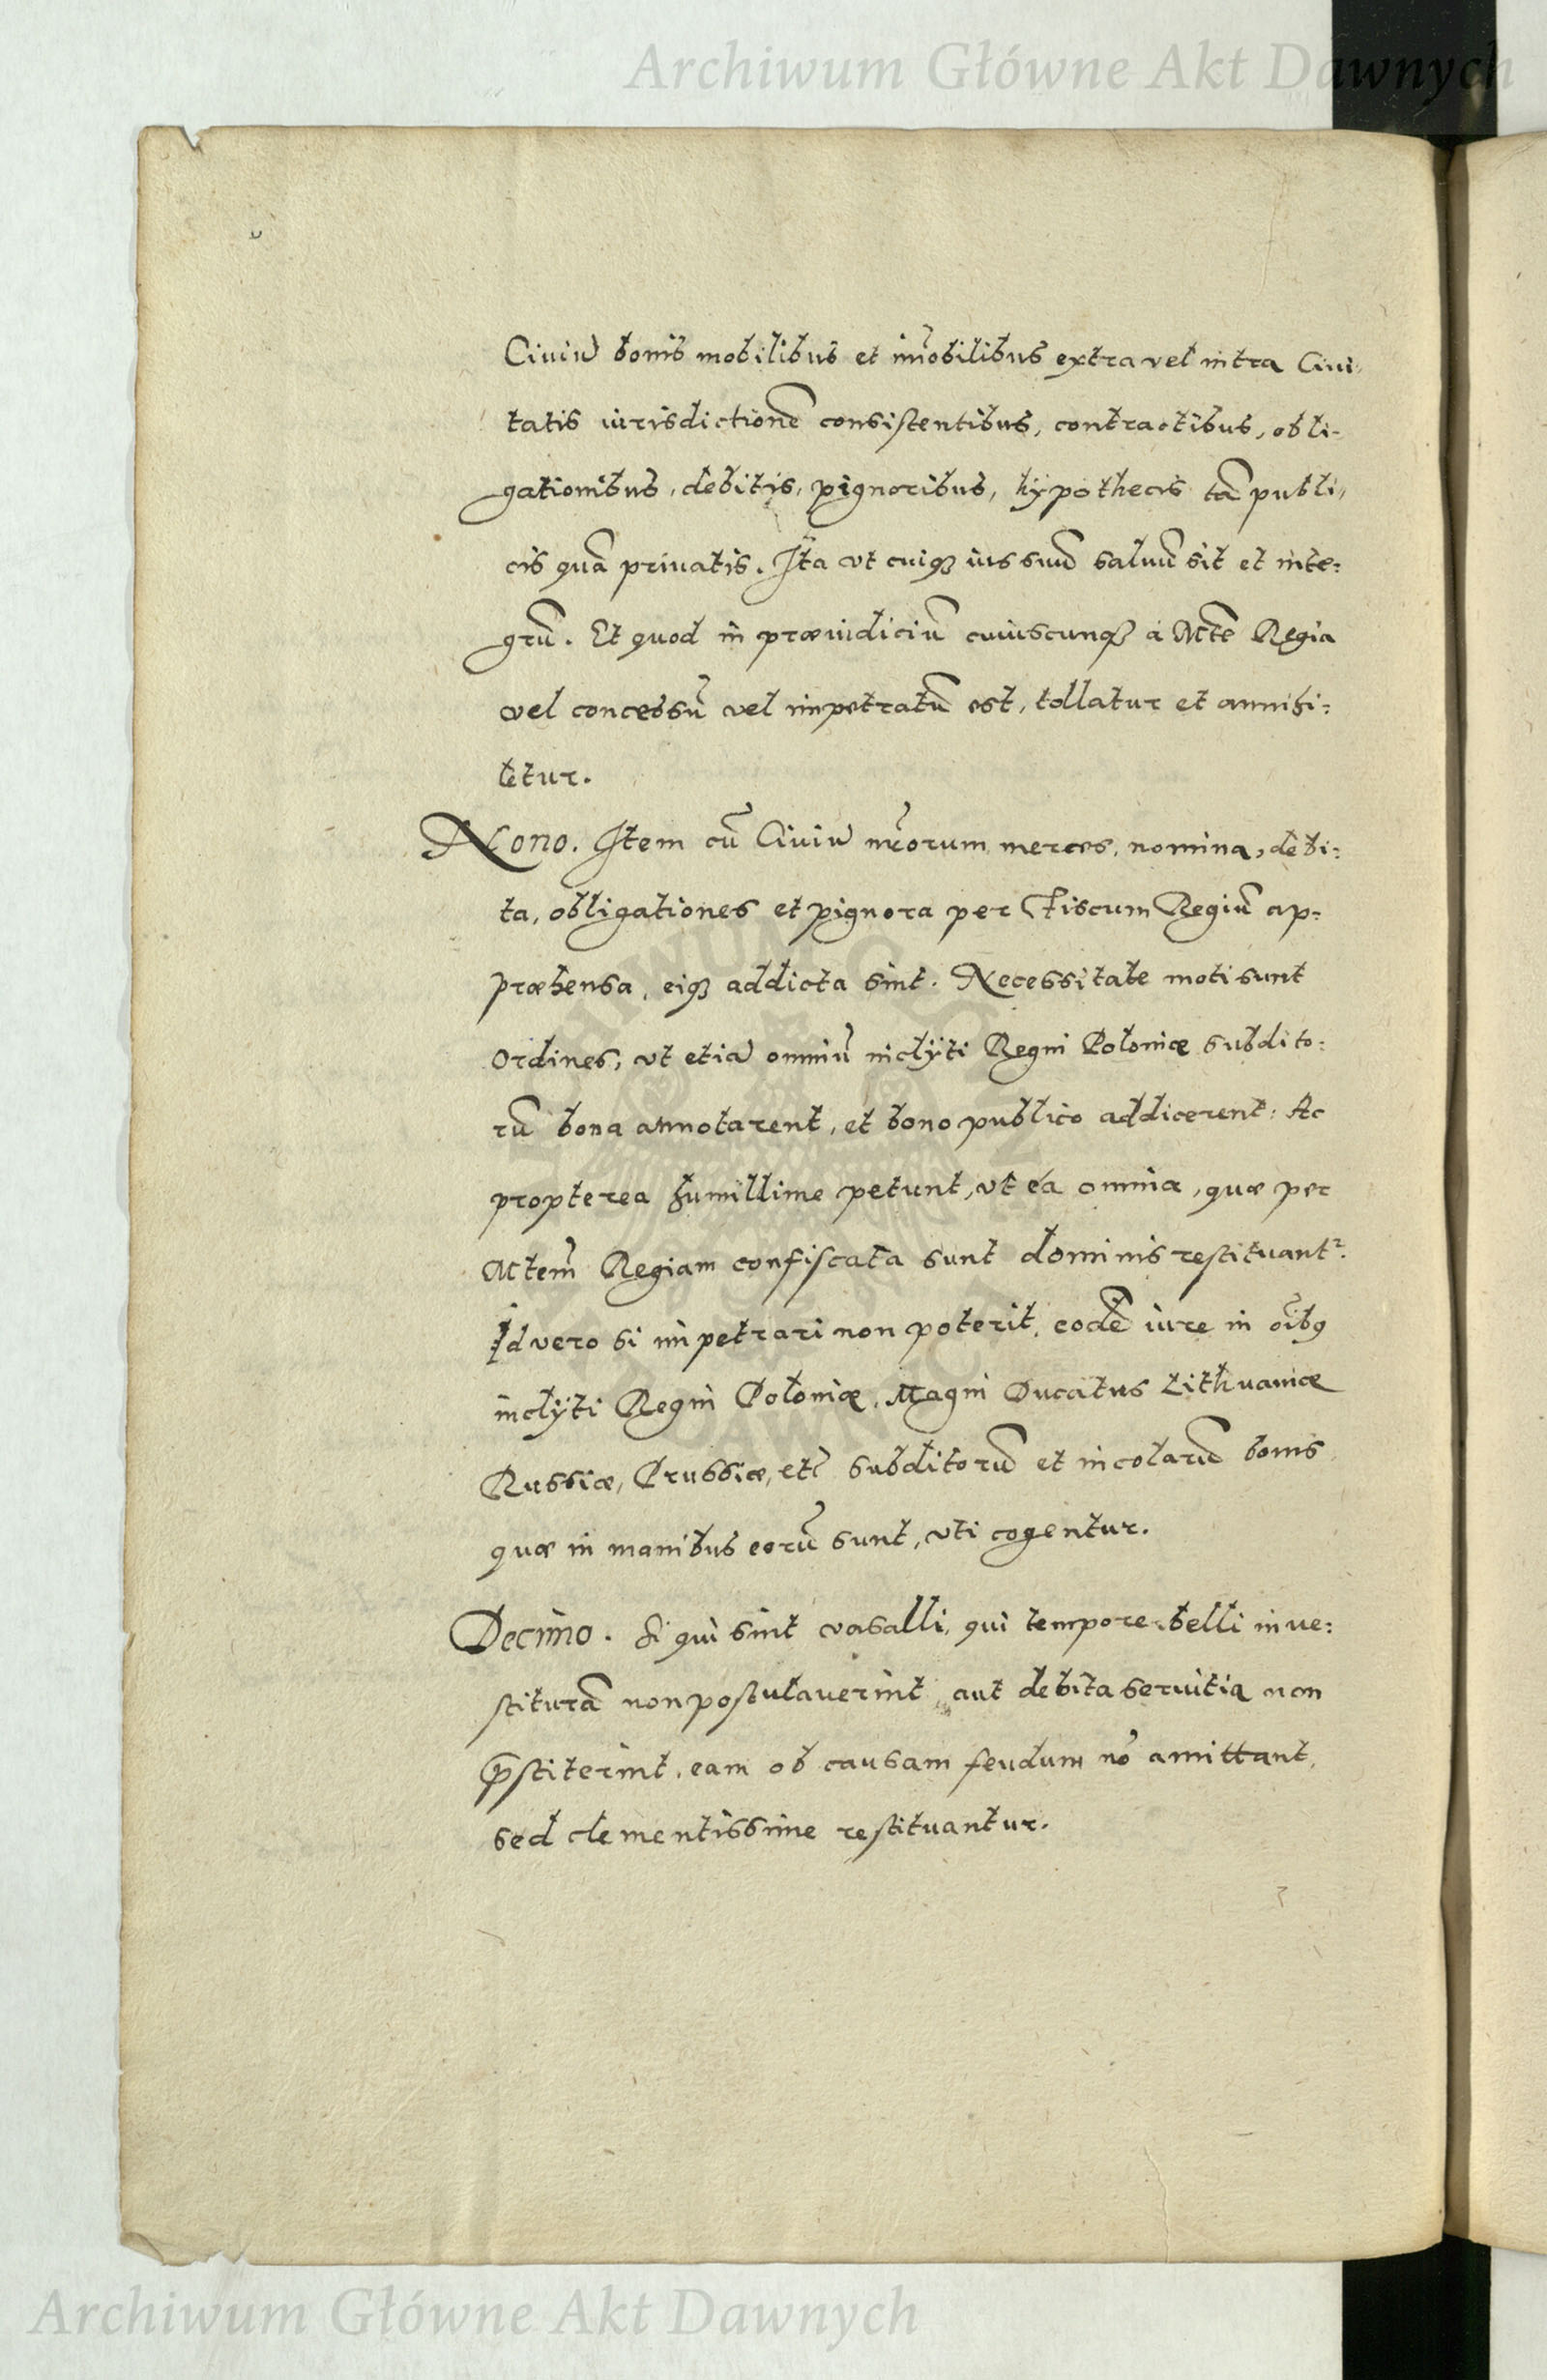 Archiwum Główne Akt Dawnych
Ciuiū bonis mobilibus et im̄obilibus extra vel intra Ciui-
tatis iurisdictionē consistentibus, contractibus, obli-
gationibus, debitis, pignoribus, hypothecis tā publi-
cis quā priuatis. Ita vt cuiqꝫ ius suū saluū sit et inte:
grū. Et quod in præiudiciū cuiuscunqꝫ à Mte Regia
vel concessū vel impetratū est, tollatur et annihi:
letur.
Nono. Item cū Ciuiū nr̄orum merces, nomina, debi:
ta, obligationes et pignora per Fiscum Regiū ap:
præhensa, eiqꝫ addicta sint. Necessitate moti sunt
Ordines, vt etiā omniū inclÿti Regni Poloniæ subdito:
rū bona annotarent, et bono publico addicerent: Ac
propterea humillime petunt, vt ea omnia, quæ per
Mtem̄ Regiam confiscata sunt dominis restituantr.
Id vero si impetrari non poterit, eodē iure in oībꝯ
inclÿti Regni Poloniæ, Magni Ducatus Lithuaniæ
Russiæ, Prussiæ, etc̄ subditorū et incolarū bonis,
quæ in manibus eorū sunt, vti cogentur.
Decimo. Si qui sint vasalli, qui tempore belli inue:
stiturā non postulauerint, aut debita seruitia non
p̄stiterint, eam ob causam feudum nō amittant,
sed clementissime restituantur.
Archiwum Główne Akt Dawnych